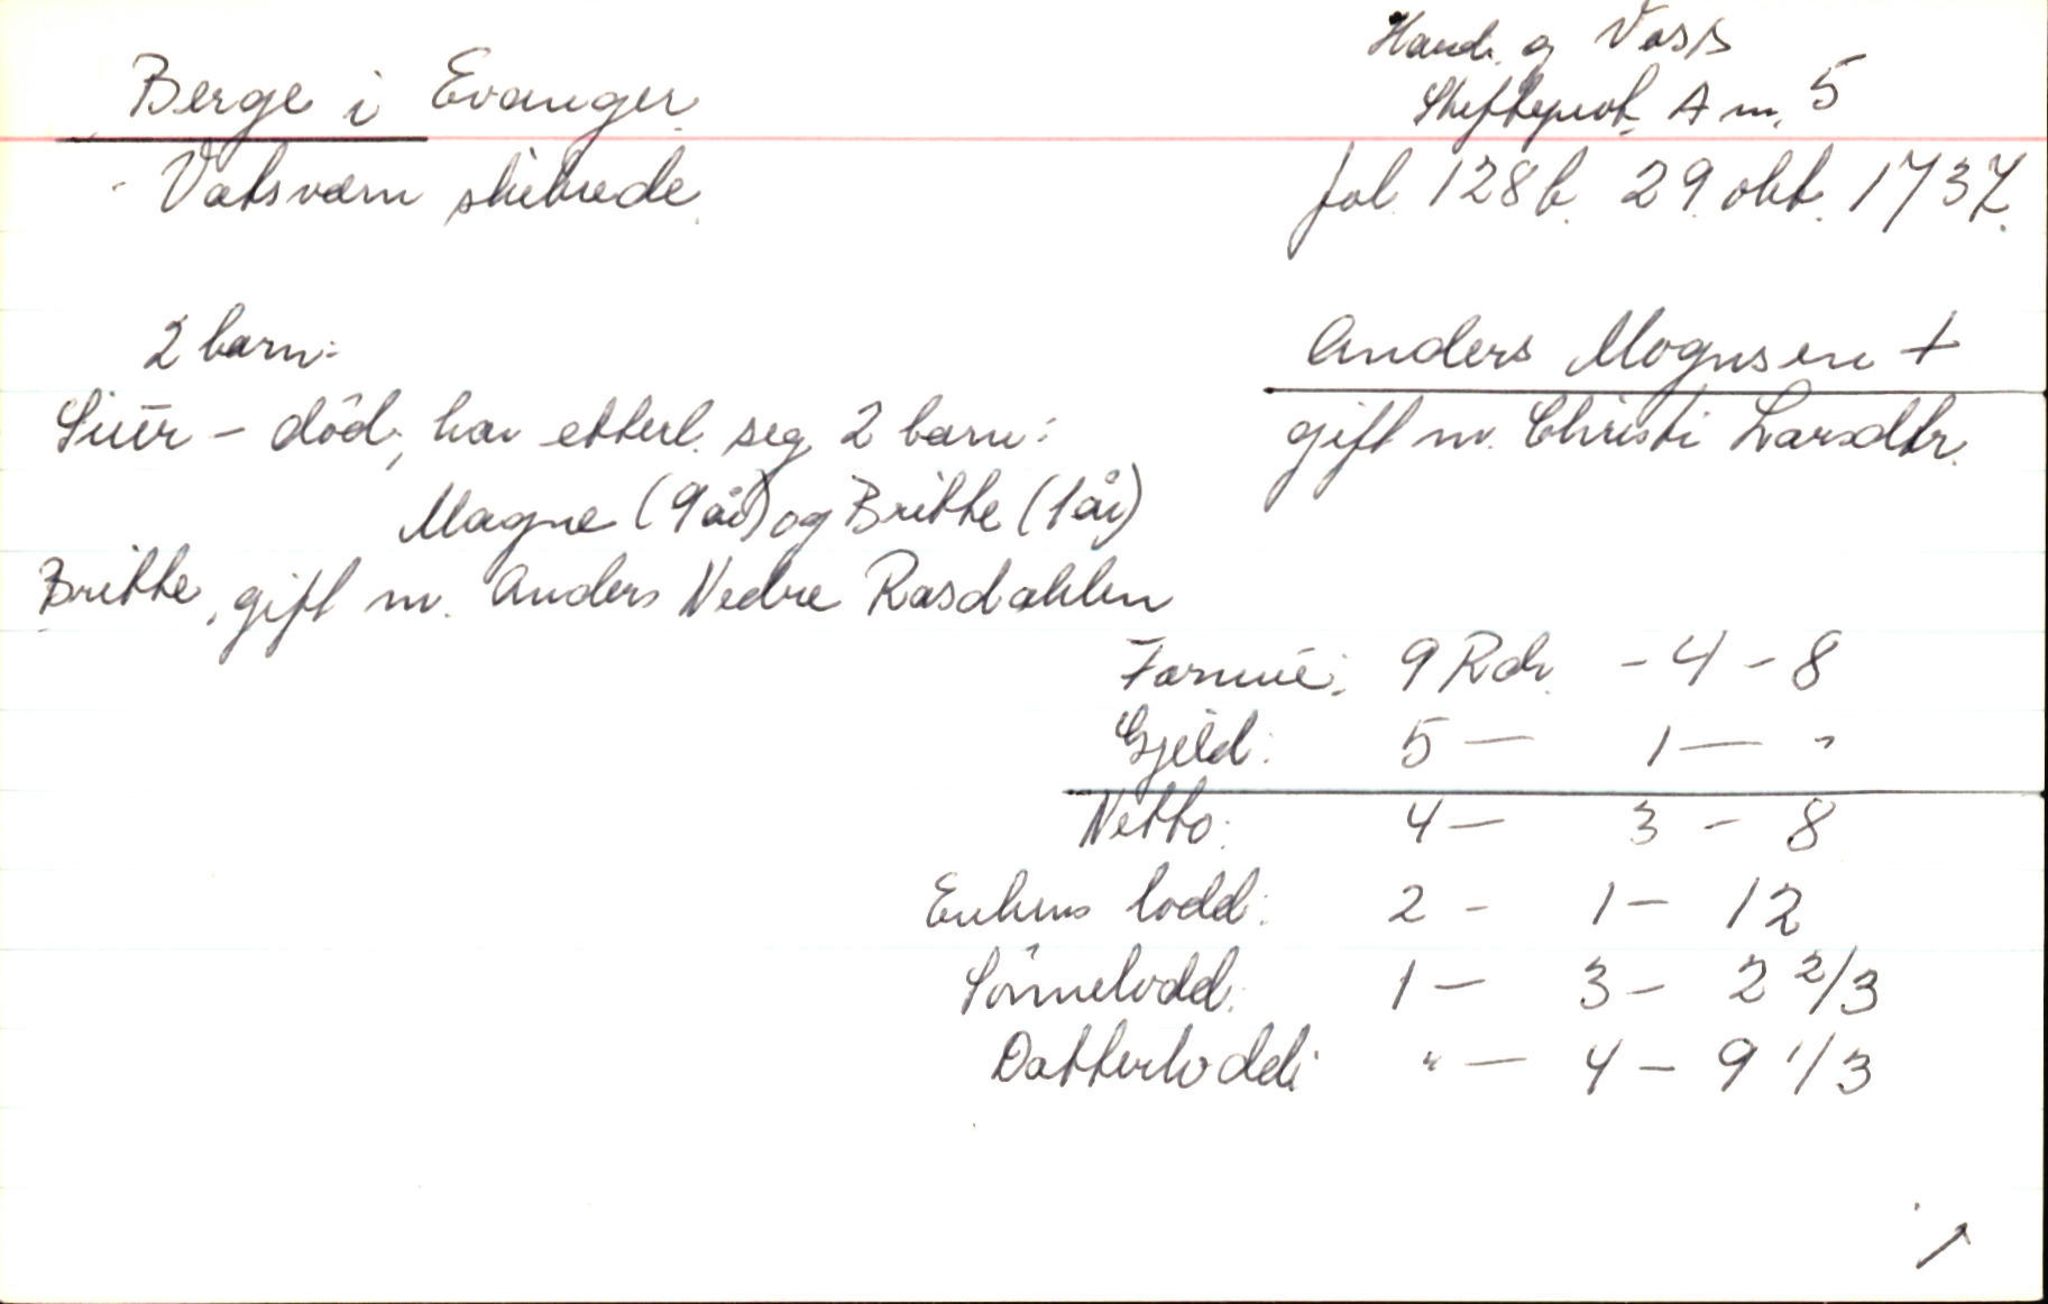 Hard. og Voss
Skifteprot. A nr. 5
Berge i Evanger
Vatsværn skibrede
fol. 128b. 29. okt. 1737.
Anders Mognsen +
gift m. Christi Larsdtr.
2 barn:
Siur - död, har etterl. seg 2 barn:
Magne (9 år) og Britte (1 år)
Britte, gift m. Anders Nedre Rasdahlen
Formue: 9 Rdr. - 4 - 8
Gjeld: 5 - 1 - "
Netto: 4 - 3 - 8
Enkens lodd: 2 - 1 - 12
Sönnelodd: 1 - 3 - 2 2/3
Datterlodd: " - 4 - 9 1/3